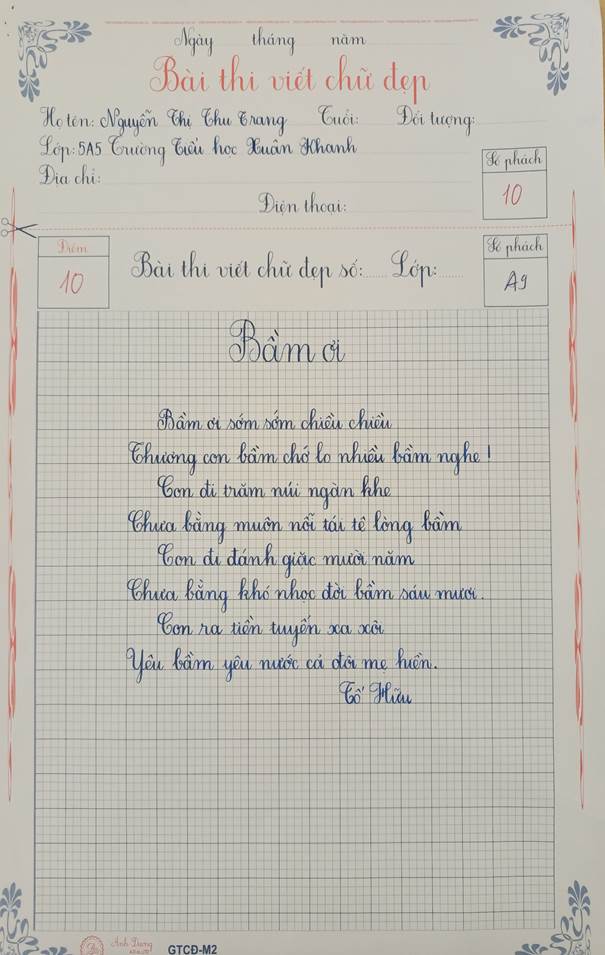 Ngày tháng năm
Bài thi viết chữ đẹp
Họ tên: Nguyễn Thị Thu Trang Tuổi: Đối tượng:
Lớp: 5A5 Trường Tiểu học Xuân Khanh
Địa chỉ:
Số phách
10
Điện thoại:
Điểm
10
Bài thi viết chữ đẹp số: Lớp:
Số phách
A9
Bầm ơi
Bầm ơi sớm sớm chiều chiều
Thương con bầm chớ lo nhiều bầm nghe!
Con đi trăm núi ngàn khe
Chưa bằng muôn nỗi tái tê lòng bầm
Con đi đánh giặc mười năm
Chưa bằng khó nhọc đời bầm sáu mươi.
Con ra tiền tuyến xa xôi
Yêu bầm yêu nước cả đôi mẹ hiền.
Tố Hữu
Anh Dương
GTCĐ-M2